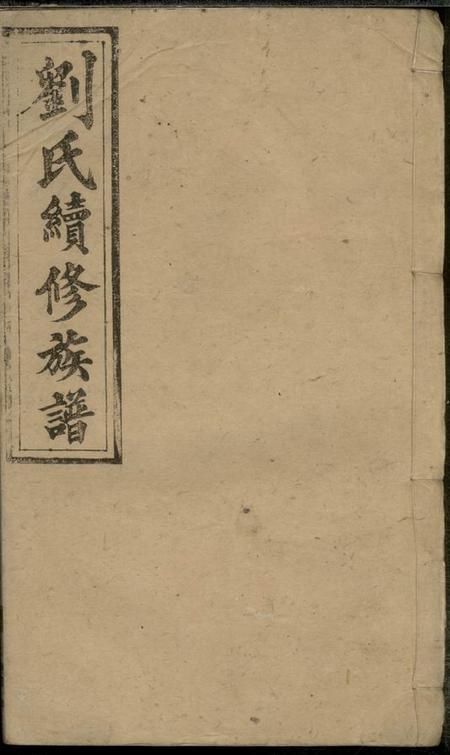 劉氏續修族譜